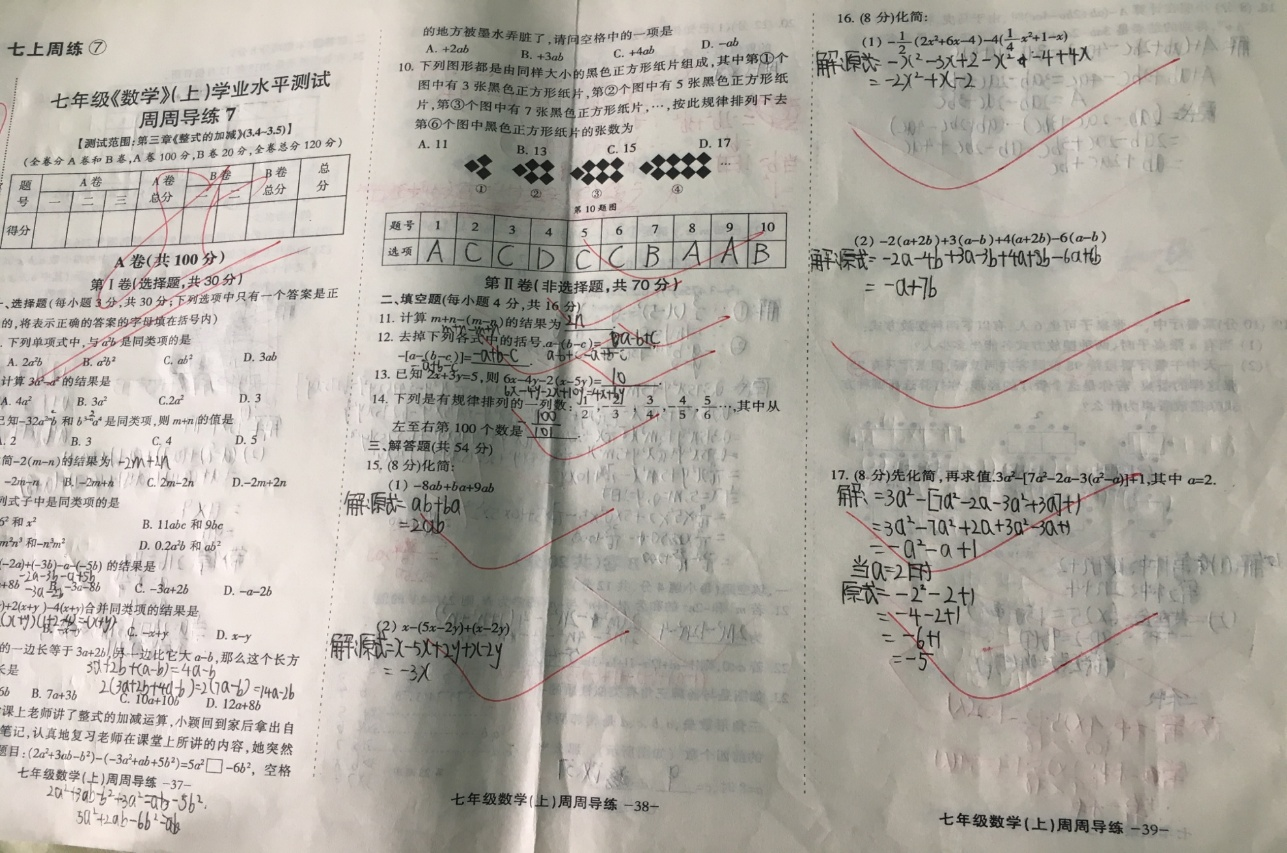 七上周练⑦
七年级《数学》(上)学业水平测试
周周导练7
【测试范围:第三章《整式的加减》(3.4~3.5)】
(全卷分A卷和B卷,A卷100分,B卷20分,全卷总分120分)
题号 A卷 A卷总分 B卷 B卷总分 总分
一 二 三 一 二
得分
A卷(共100分)
第Ⅰ卷(选择题,共30分)
、选择题(每小题3分,共30分;下列选项中只有一个答案是正
的,将表示正确的答案的字母填在括号内)
下列单项式中,与a²b是同类项的是
A. 2a²b B. a²b² C. ab² D. 3ab
计算3a²-a²的结果是
A. 4a² B. 3a² C.2a² D. 3
已知-32a
和
是同类项,则m+n的值是
. 2 B. 3 C. 4 D. 5
简-2(m-n)的结果为 -2m+2n
-2m-n B. -2m+n C. 2m-2n D.-2m+2n
列式子中是同类项的是
6²和x² B. 11abc和9bc
m²n³和-n³m² D. 0.2a²b和ab²
(-2a)+(-3b)-a-(-5b)的结果是
-2a-3b-a+5b
+8b B. -3a-8b C. -3a+2b D. -a-2b
-3a+2b
)+2(x+y)-4(x+y)合并同类项的结果是
(x+y)(1+2-4)=-(x+y)
B. -x-y C. -x+y D. x-y
的一边长等于3a+2b,另一边比它大a-b,那么这个长方
长是 3a+2b+(a-b)=4a-b
2(3a+2b+4a-b)=2(7a-b)=14a-2b
6b B. 7a+3b C. 10a+10b D. 12a+8b
课上老师讲了整式的加减运算,小颖回到家后拿出自
笔记,认真地复习老师在课堂上所讲的内容,她突然
题目:(2a²+3ab-b²)-(-3a²+ab+5b²)=5a²□-6b²,空格
七年级数学(上)周周导练 -37-
2a²+3ab-b²+3a²-ab-5b²
5a²+2ab-6b²
的地方被墨水弄脏了,请问空格中的一项是
A. +2ab B. +3ab C. +4ab D. -ab
10. 下列图形都是由同样大小的黑色正方形纸片组成,其中第①个
图中有3张黑色正方形纸片,第②个图中有5张黑色正方形纸
片,第③个图中有7张黑色正方形纸片,…,按此规律排列下去
第⑥个图中黑色正方形纸片的张数为
A. 11 B. 13 C. 15 D. 17
…
① ② ③ ④
第10题图
题号 1 2 3 4 5 6 7 8 9 10
选项 A C C D C C B A A B
第Ⅱ卷(非选择题,共70分)
二、填空题(每小题4分,共16分)
11. 计算m+n-(m-n)的结果为 2n .
12. 去掉下列各式中的括号.a-(b-c)= a-b+c
-[a-(b-c)]= -a+b-c .
13. 已知2x+3y=5,则6x-4y-2(x-5y)= 10 .
6x-4y-2x+10y=4x+6y
14. 下列是有规律排列的一列数: 1/2, -2/3, 3/4, -4/5, 5/6…,其中从
左至右第100个数是 100/101 .
三、解答题(共54分)
15. (8分)化简:
(1) -8ab+ba+9ab
解:原式= ab+ba
=2ab
(2) x-(5x-2y)+(x-2y)
解:原式=x-5x+2y+x-2y
= -3x
七年级数学(上)周周导练 -38-
16. (8分)化简:
(1) -1/2(2x²+6x-4)-4(1/4x²+1-x)
解:原式= -x²-3x+2-x²-4+4x
= -2x²+x-2
(2) -2(a+2b)+3(a-b)+4(a+2b)-6(a-b)
解:原式= -2a-4b+3a-3b+4a+8b-6a+6b
= -a+7b
17. (8分)先化简,再求值.3a²-[7a²-2a-3(a²-a)]+1,其中a=2.
解:=3a²-[7a²-2a-3a²+3a]+1
=3a²-7a²+2a+3a²-3a+1
= -a²-a+1
当a=2时
原式= -2²-2+1
= -4-2+1
= -6+1
= -5
七年级数学(上)周周导练 -39-